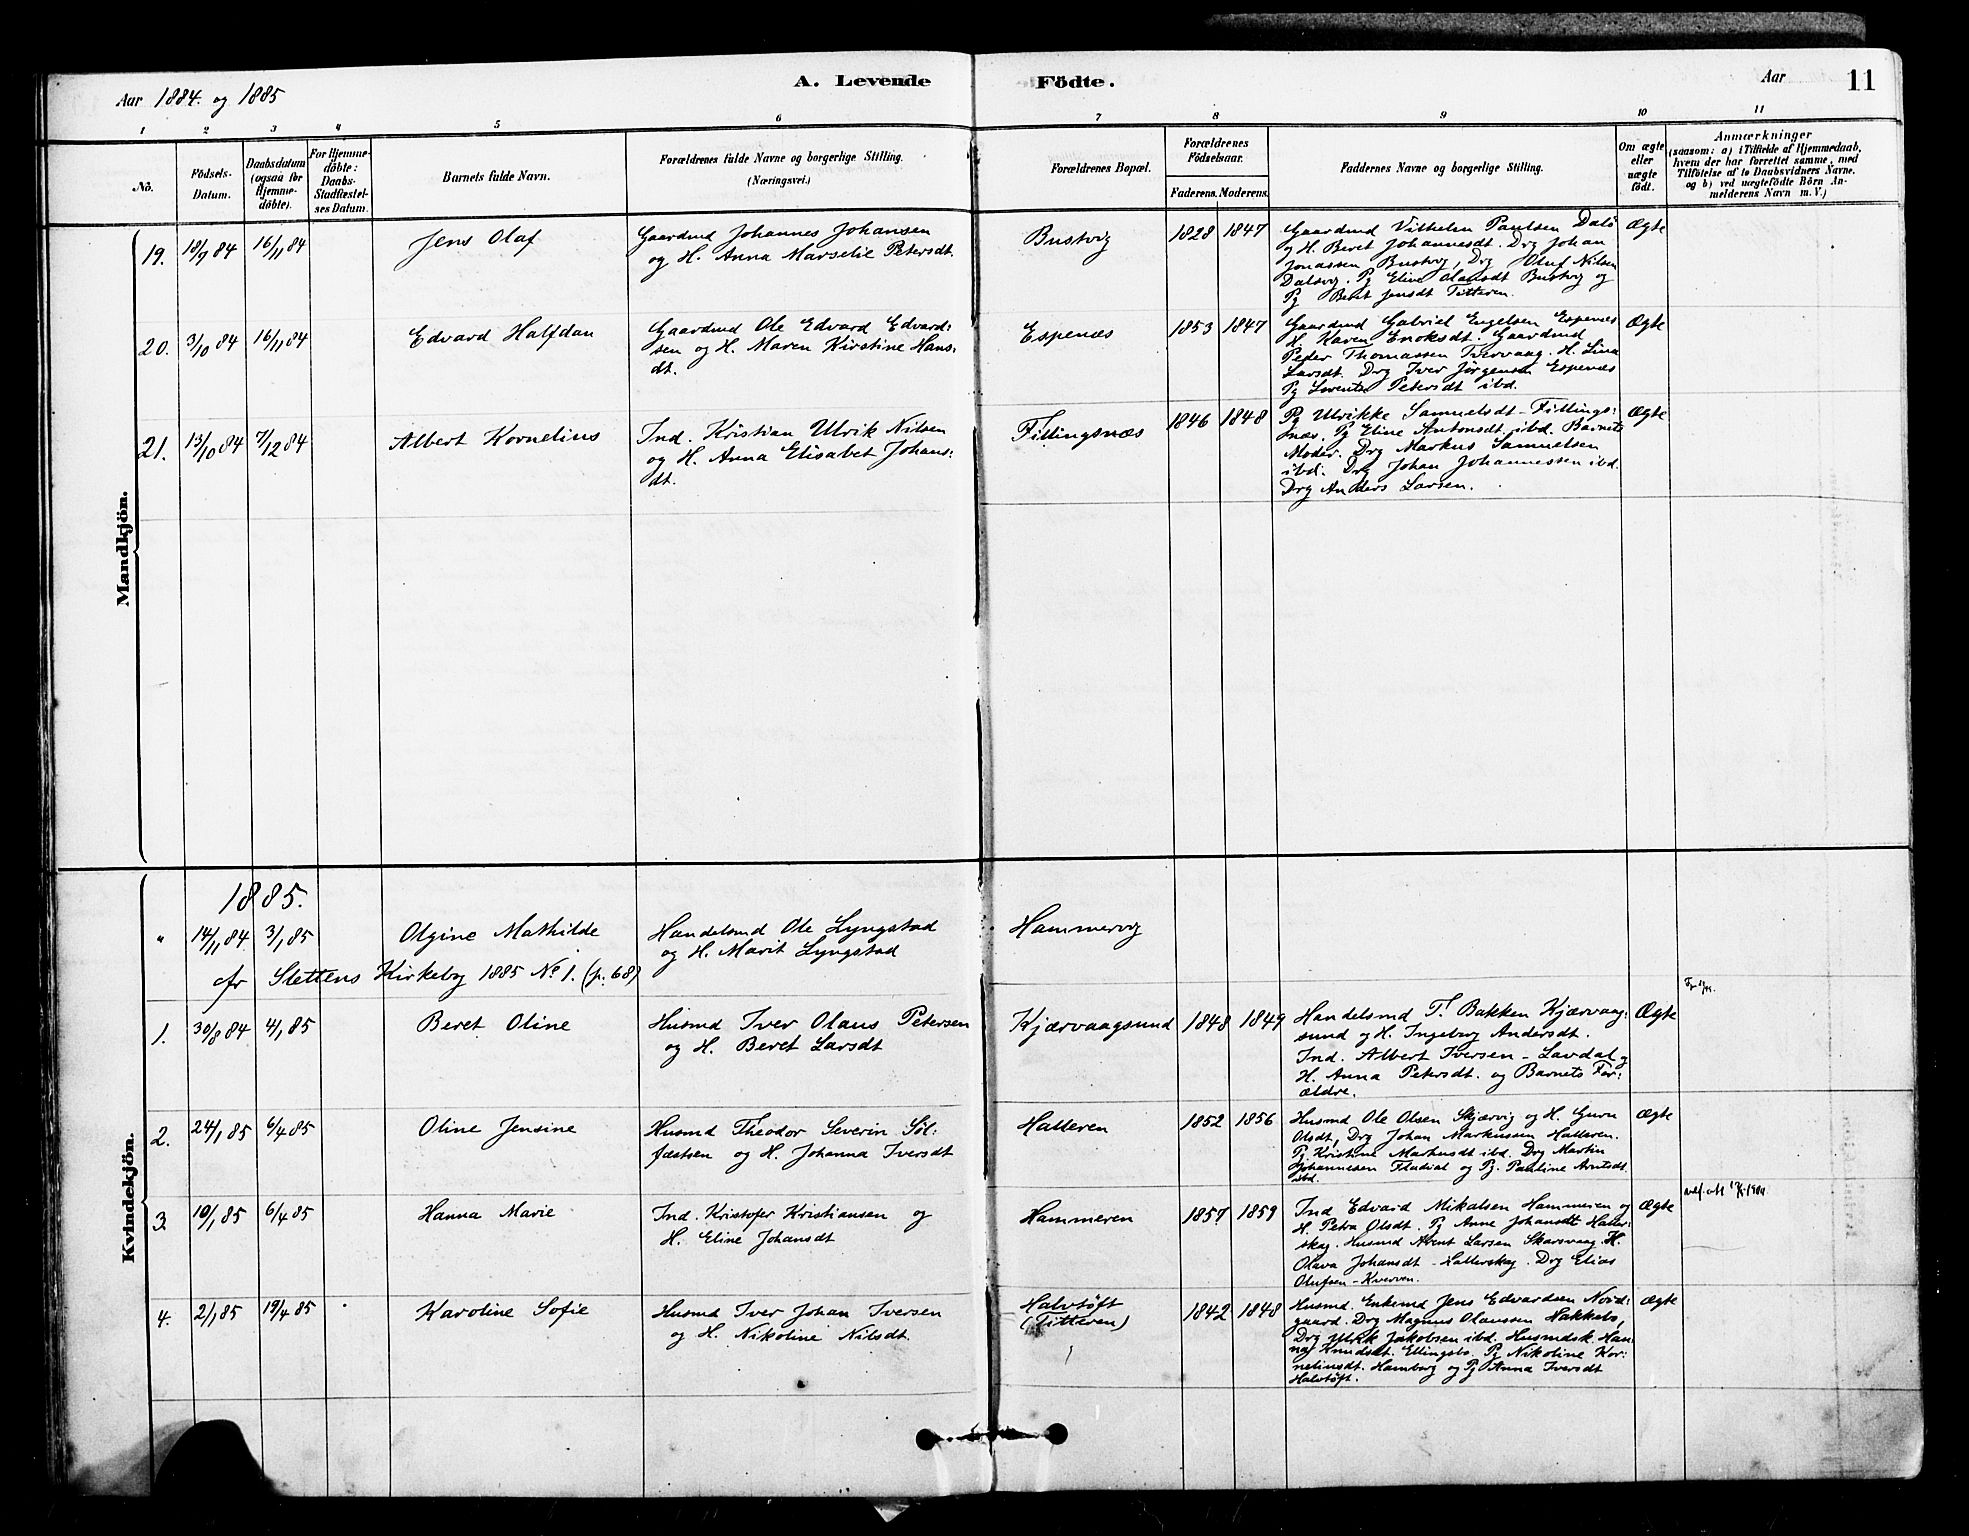 Aar 1884. og 1885
A. Levende Födte.
Aar
11
1 2 3 4 5 6 7 8 9 10 11
No.
Födsels-Datum.
Daabsdatum (ogsaa for Hjemme-döbte).
For Hjemme-döbte: Daabs-Stadfæstel-ses Datum.
Barnets fulde Navn.
Forældrenes fulde Navne og borgerlige Stilling.
(Næringsvei.)
Forældrenes Bopæl.
Forældrenes Födselsaar.
Faderens. Moderens.
Faddernes Navne og borgerlige Stilling.
Om ægte eller uægte födt.
Anmærkninger
(saasom: a) i Tilfælde af Hjemmedaab,
hvem der har forrettet samme, med
Tilföielse af to Daabsvidners Navne.
og b) ved uægtefödte Börn An-
melderens Navn m. V.)
Mandkjön.
19. 18/9 84 16/11 84 Jens Olaf
Gaardmd Johannes Johansen
og H. Anna Marselie Petersdt.
Bustvig 1828 1847
Gaardmd Vilhelm Paulsen Dalö
og H. Beret Johannesdt. Drg Johan
Jonassen Bustvig, Drg Oluf Nilsen
Dalsvig. Pg Eline Olausdt Bustvig og
Pg Beret Jensdt Titteren.
Ægte
20. 3/10 84 16/11 84 Edvard Halfdan
Gaardmd Ole Edvard Edvard:
sen og H. Maren Kirstine Hans:
dt.
Espenæs 1853 1847
Gaardmd Gabriel Engelsen Espenæs
H. Karen Enoksdt. Gaardmd
Peder Thomassen Tvervaag. H. Lina
Larsdt. Drg Iver Jørgensen Espenæs
Pg Lorentse Petersdt ibd.
Ægte
21. 13/10 84 7/12 84 Albert Kornelius
Ind. Kristian Ulrik Nilsen
og H. Anna Elisabet Johans:
dt.
Fillingsnæs 1846 1848
Pg Ulrikke Samuelsdt - Fillings:
næs. Pg Eline Antonsdt ibd. Barnets
Moder. Drg Markus Samuelsen
ibd. Drg Johan Johannessen ibd.
Drg Anders Larsen.
Ægte
Kvindekjön.
1885.
" 14/11 84 3/1 85 Olgine Mathilde
Handelsmd Ole Lyngstad
og H. Marit Lyngstad
Hammervig
cfr Slettens Kirkebog 1885 No 1. (p. 68)
1. 30/8 84 4/1 85 Beret Oline
Husmd Iver Olaus Petersen
og H. Beret Larsdt
Kjærvaagsund 1848 1849
Handelsmd T. Bakken Kjærvaag:
sund og H. Ingeborg Andersdt.
Ind. Albert Iversen - Lavdal og
H. Anna Petersdt. og Barnets For:
ældre.
Ægte
2. 24/1 85 6/4 85 Oline Jensine
Husmd Theodor Severin Söl:
fæstsen og H. Johanna Iversdt
Hatteren 1852 1856
Husmd Ole Olsen Skjærvig og H. Guru
Olsdt, Drg Johan Markussen Hatteren.
Pg. Kristine Markusdt ibd. Drg Martin
Johannesen Fladval og Pg. Pauline Arntsdt.
ibd.
Ægte
3. 10/1 85 6/4 85 Hanna Marie
Ind. Kristofer Kristiansen og
H. Eline Johansdt
Hammeren 1857 1859
Ind Edvard Mikalsen Hammeren og
H. Petra Olsdt. Pg Anne Johansdt Hatter:
skag. Husmd Arent Larsen Skarsvaag H.
Olava Johansdt - Hatterskag. Drg Elias
Olufsen - Kverven.
Ægte
4. 2/1 85 19/4 85 Karoline Sofie
Husmd Iver Johan Iversen
og H. Nikoline Nilsdt.
Halvtöft
(Titteren) 1842 1848
Husmd. Enkemd Jens Edvardsen Nord:
gaard. Drg Magnus Olaussen Hakkebo,
Drg Ulrik Jakobsen ibd. Husmdsk. Han:
na Knudsdt. Ellingsbo. Pg Nikoline Kor:
neliusdt. Hamborg og Pg Anna Iversdt
Halvtöft.
Ægte